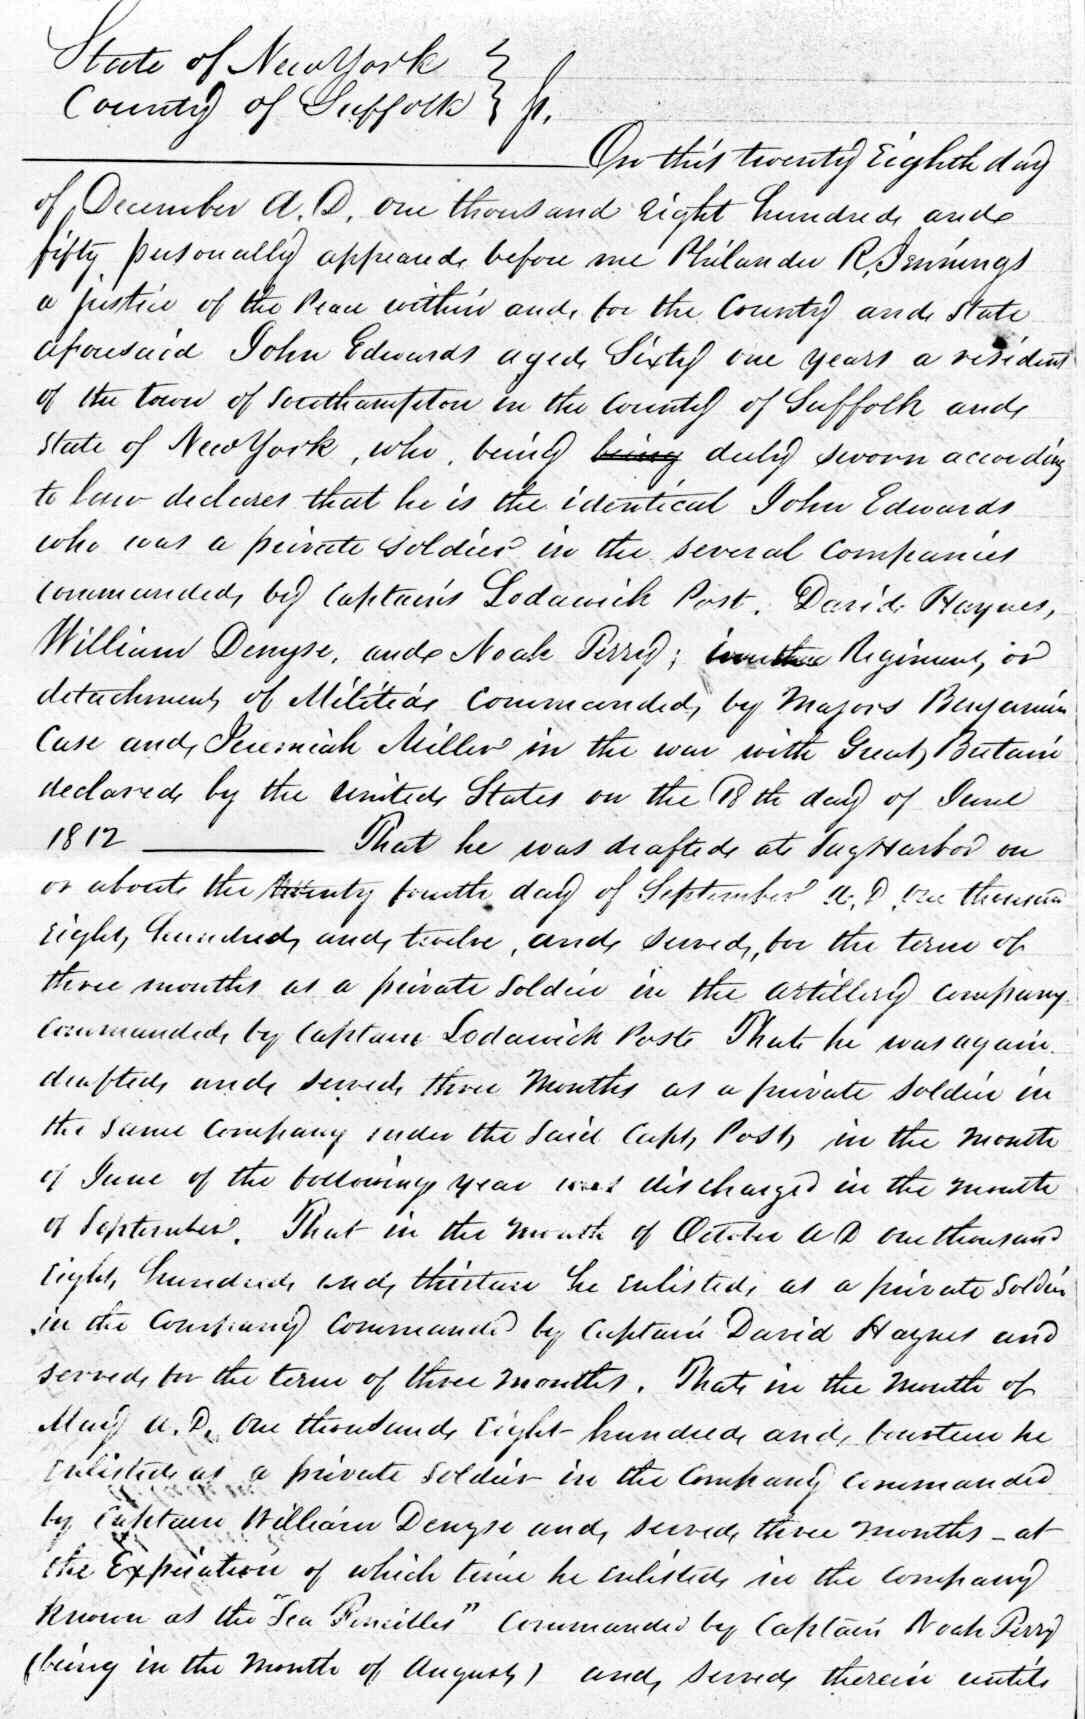 State of New York
County of Suffolk } ss.
On this twenty Eighth day
of December A.D. one thousand Eight hundred and
fifty personally appeared before me Philander R. Jennings
a justice of the Peace within and for the County and State
aforesaid John Edwards aged Sixty one years a resident
of the town of Southampton in the County of Suffolk and
State of New York, who, being being duly sworn according
to law declares that he is the identical John Edwards
who was a private Soldier in the several Companies
commanded by Captains Lodawick Post, David Haynes,
William Denyse, and Noah Terry; Regiment or
detachment of Militia commanded by Majors Benjamin
Case and Jeremiah Miller in the war with Great Britain
declared by the United States on the 18th day of June
1812 That he was drafted at Sag Harbor on
or about the twenty fourth day of September A.D. one thousand
Eight hundred and twelve, and served for the term of
three months as a private Soldier in the artillery company
commanded by Captain Lodawick Post That he was again
drafted and served three Months as a private Soldier in
the same Company under the said Capt. Post in the Month
of June of the following year was discharged in the month
of September. That in the Month of October A D one thousand
Eight hundred and thirteen he enlisted as a private Soldier
in the Company Commanded by Captain David Haynes and
served for the term of three Months. That in the Month of
May A.D. One thousand Eight hundred and fourteen he
enlisted as a private Soldier in the Company commanded
by Captain William Denyse and served three Months - at
the Expiration of which time he enlisted in the company
known as the "Sea Fencibles" Commanded by Captain Noah Terry
(being in the Month of August) and served therein until